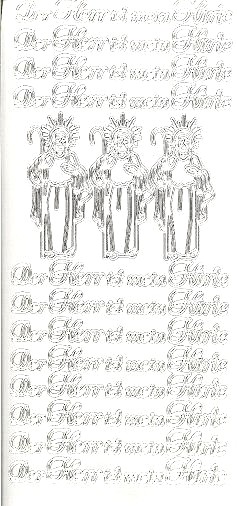 Der Herr ist mein Hirte
Der Herr ist mein Hirte
Der Herr ist mein Hirte
Der Herr ist mein Hirte
Der Herr ist mein Hirte
Der Herr ist mein Hirte
Der Herr ist mein Hirte
Der Herr ist mein Hirte
Der Herr ist mein Hirte
Der Herr ist mein Hirte
Der Herr ist mein Hirte
Der Herr ist mein Hirte